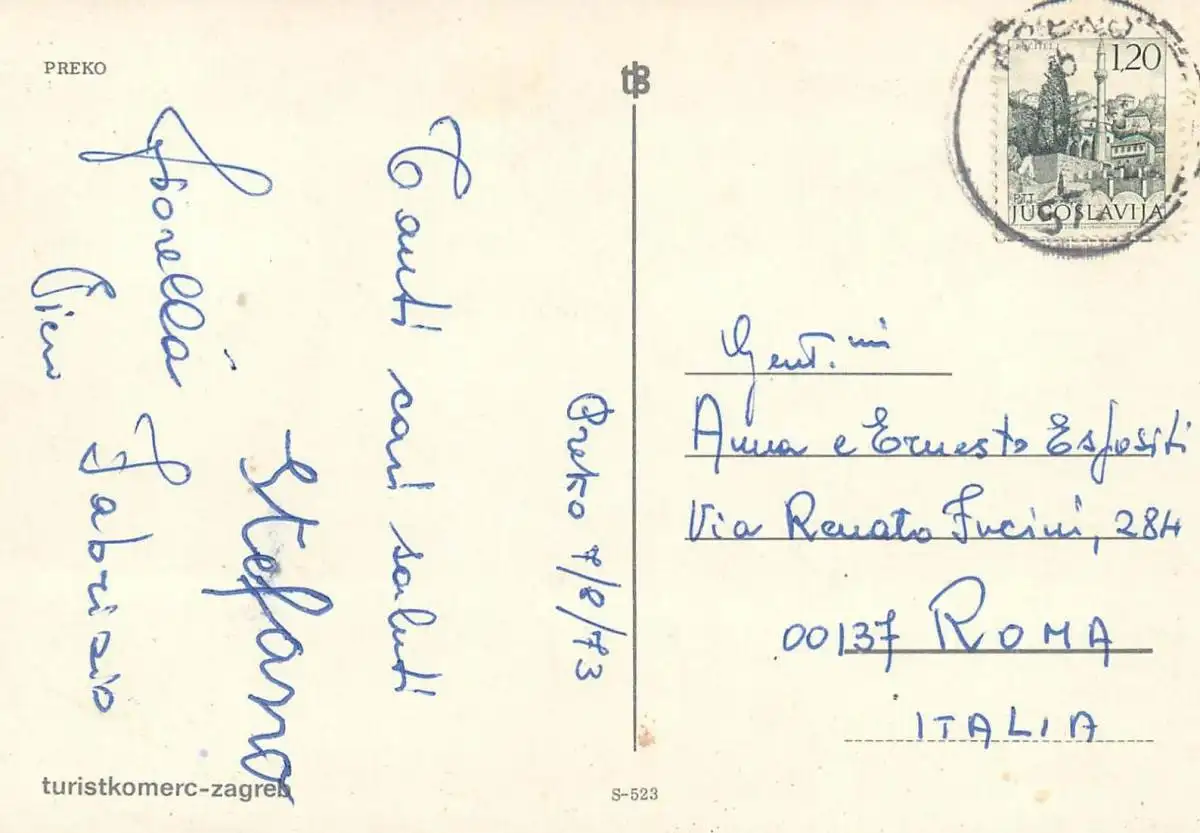 PREKO
Preko 7/8/73
Tanti cari saluti
Stefano
Fiorella Fabrizio
Piero
turistkomerc-zagreb
S-523
POČITELJ
1,20
PTT
JUGOSLAVIJA
57
Gent.mi
Anna e Ernesto Espositi
Via Renato Fucini, 284
00137 ROMA
ITALIA